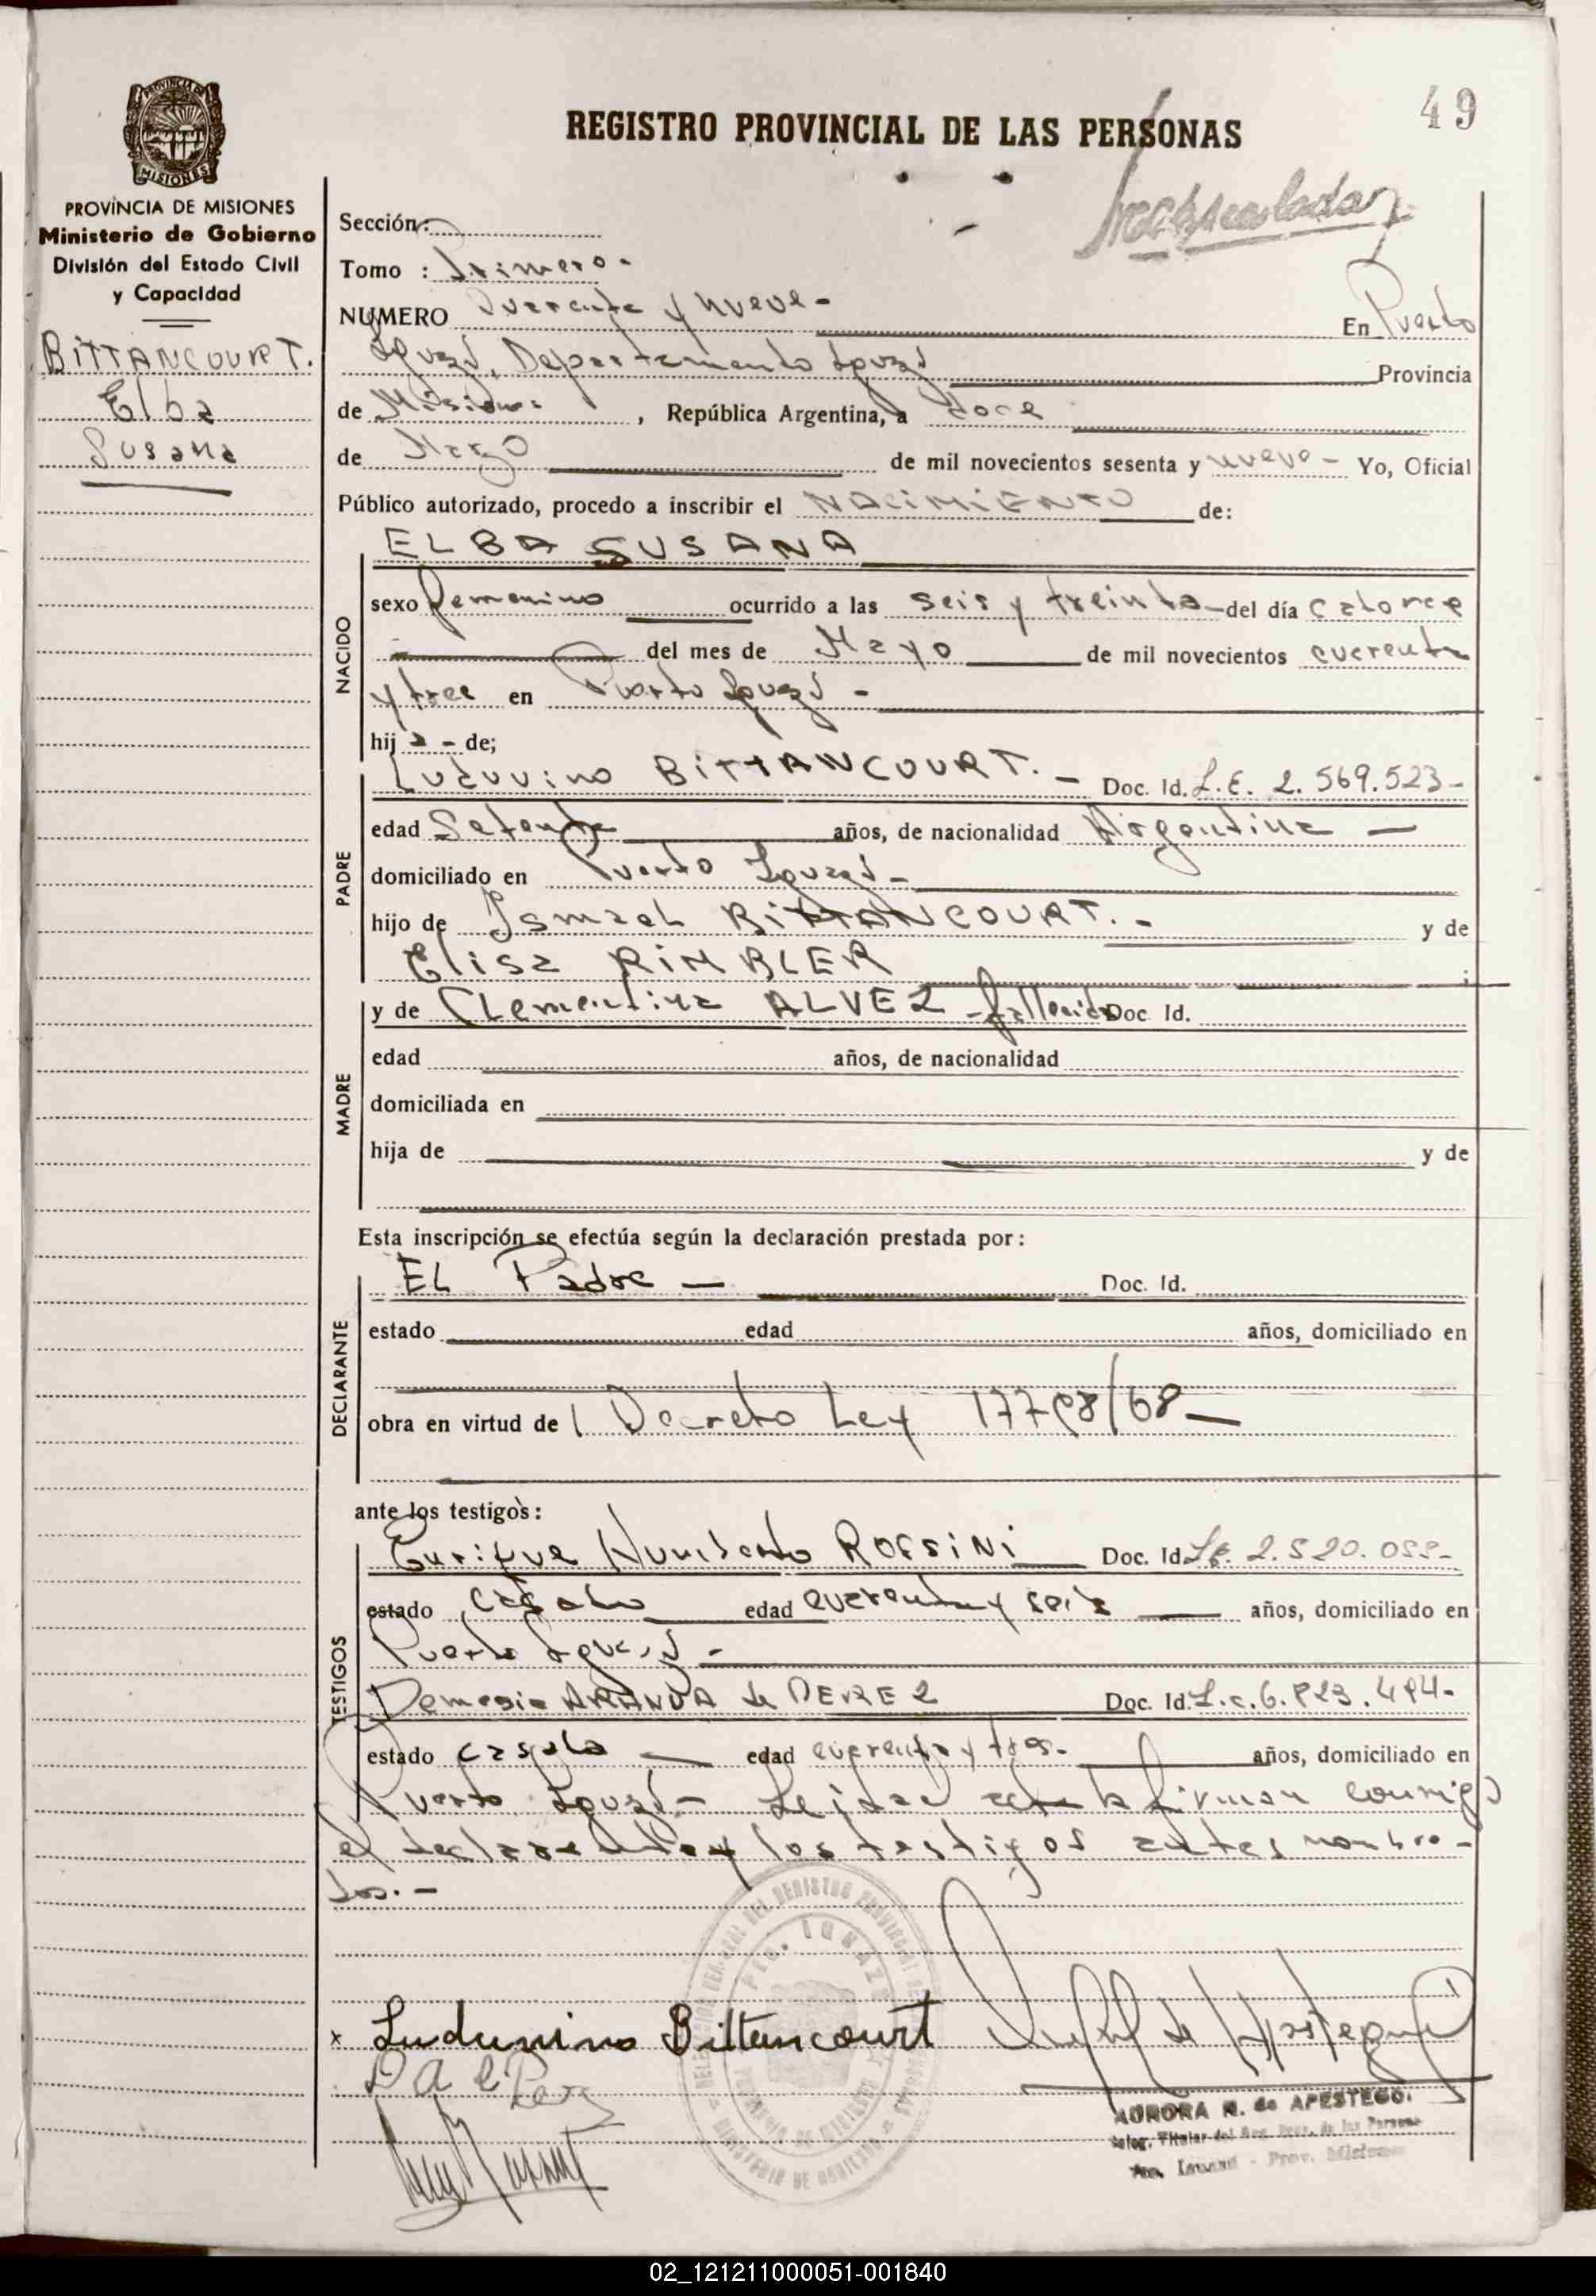 49
REGISTRO PROVINCIAL DE LAS PERSONAS
PROVINCIA DE MISIONES
Ministerio de Gobierno
División del Estado Civil
y Capacidad
BITTANCOURT.
Elba
Susana
Sección:
Tomo : Primero.
NUMERO Cuarenta y nueve - En Puerto
Iguazú, Departamento Iguazú Provincia
de Misiones , República Argentina, a doce
de Marzo de mil novecientos sesenta y nueve - Yo, Oficial
Público autorizado, procedo a inscribir el NACIMIENTO de:
ELBA SUSANA
NACIDO
sexo femenino ocurrido a las seis y treinta - del día catorce
del mes de Mayo de mil novecientos cuarenta
y tres en Puerto Iguazú -
hij a - de;
PADRE
Luduvino BITTANCOURT. - Doc. Id. L.E. 2.569.523-
edad Setenta años, de nacionalidad Argentina -
domiciliado en Puerto Iguazú -
hijo de Ismael BITTANCOURT. - y de
Elisa RIMBLER ;
MADRE
y de Clementina ALVEZ - fallecida Doc. Id.
edad años, de nacionalidad
domiciliada en
hija de y de
Esta inscripción se efectúa según la declaración prestada por:
DECLARANTE
El Padre - Doc. Id.
estado edad años, domiciliado en
obra en virtud de Decreto Ley /68 -
ante los testigos:
TESTIGOS
Enrique Humberto ROSSINI Doc. Id. L.E. 2.520.
estado casado edad cuarenta y seis años, domiciliado en
Puerto Iguazú -
Demesia ARANDA de PEREZ Doc. Id. L.C. 6.
estado casada edad cuarenta y tres - años, domiciliado en
Puerto Iguazú - Leída el acta la firman conmigo
el declarante y los testigos antes nombra-
dos. -
x Luduvino Bittancourt
D A de Perez
AURORA R. de APESTEGUI
Deleg. Titular del Reg. Prov. de las Personas
Pto. Iguazú - Prov. Misiones
02_121211000051-001840